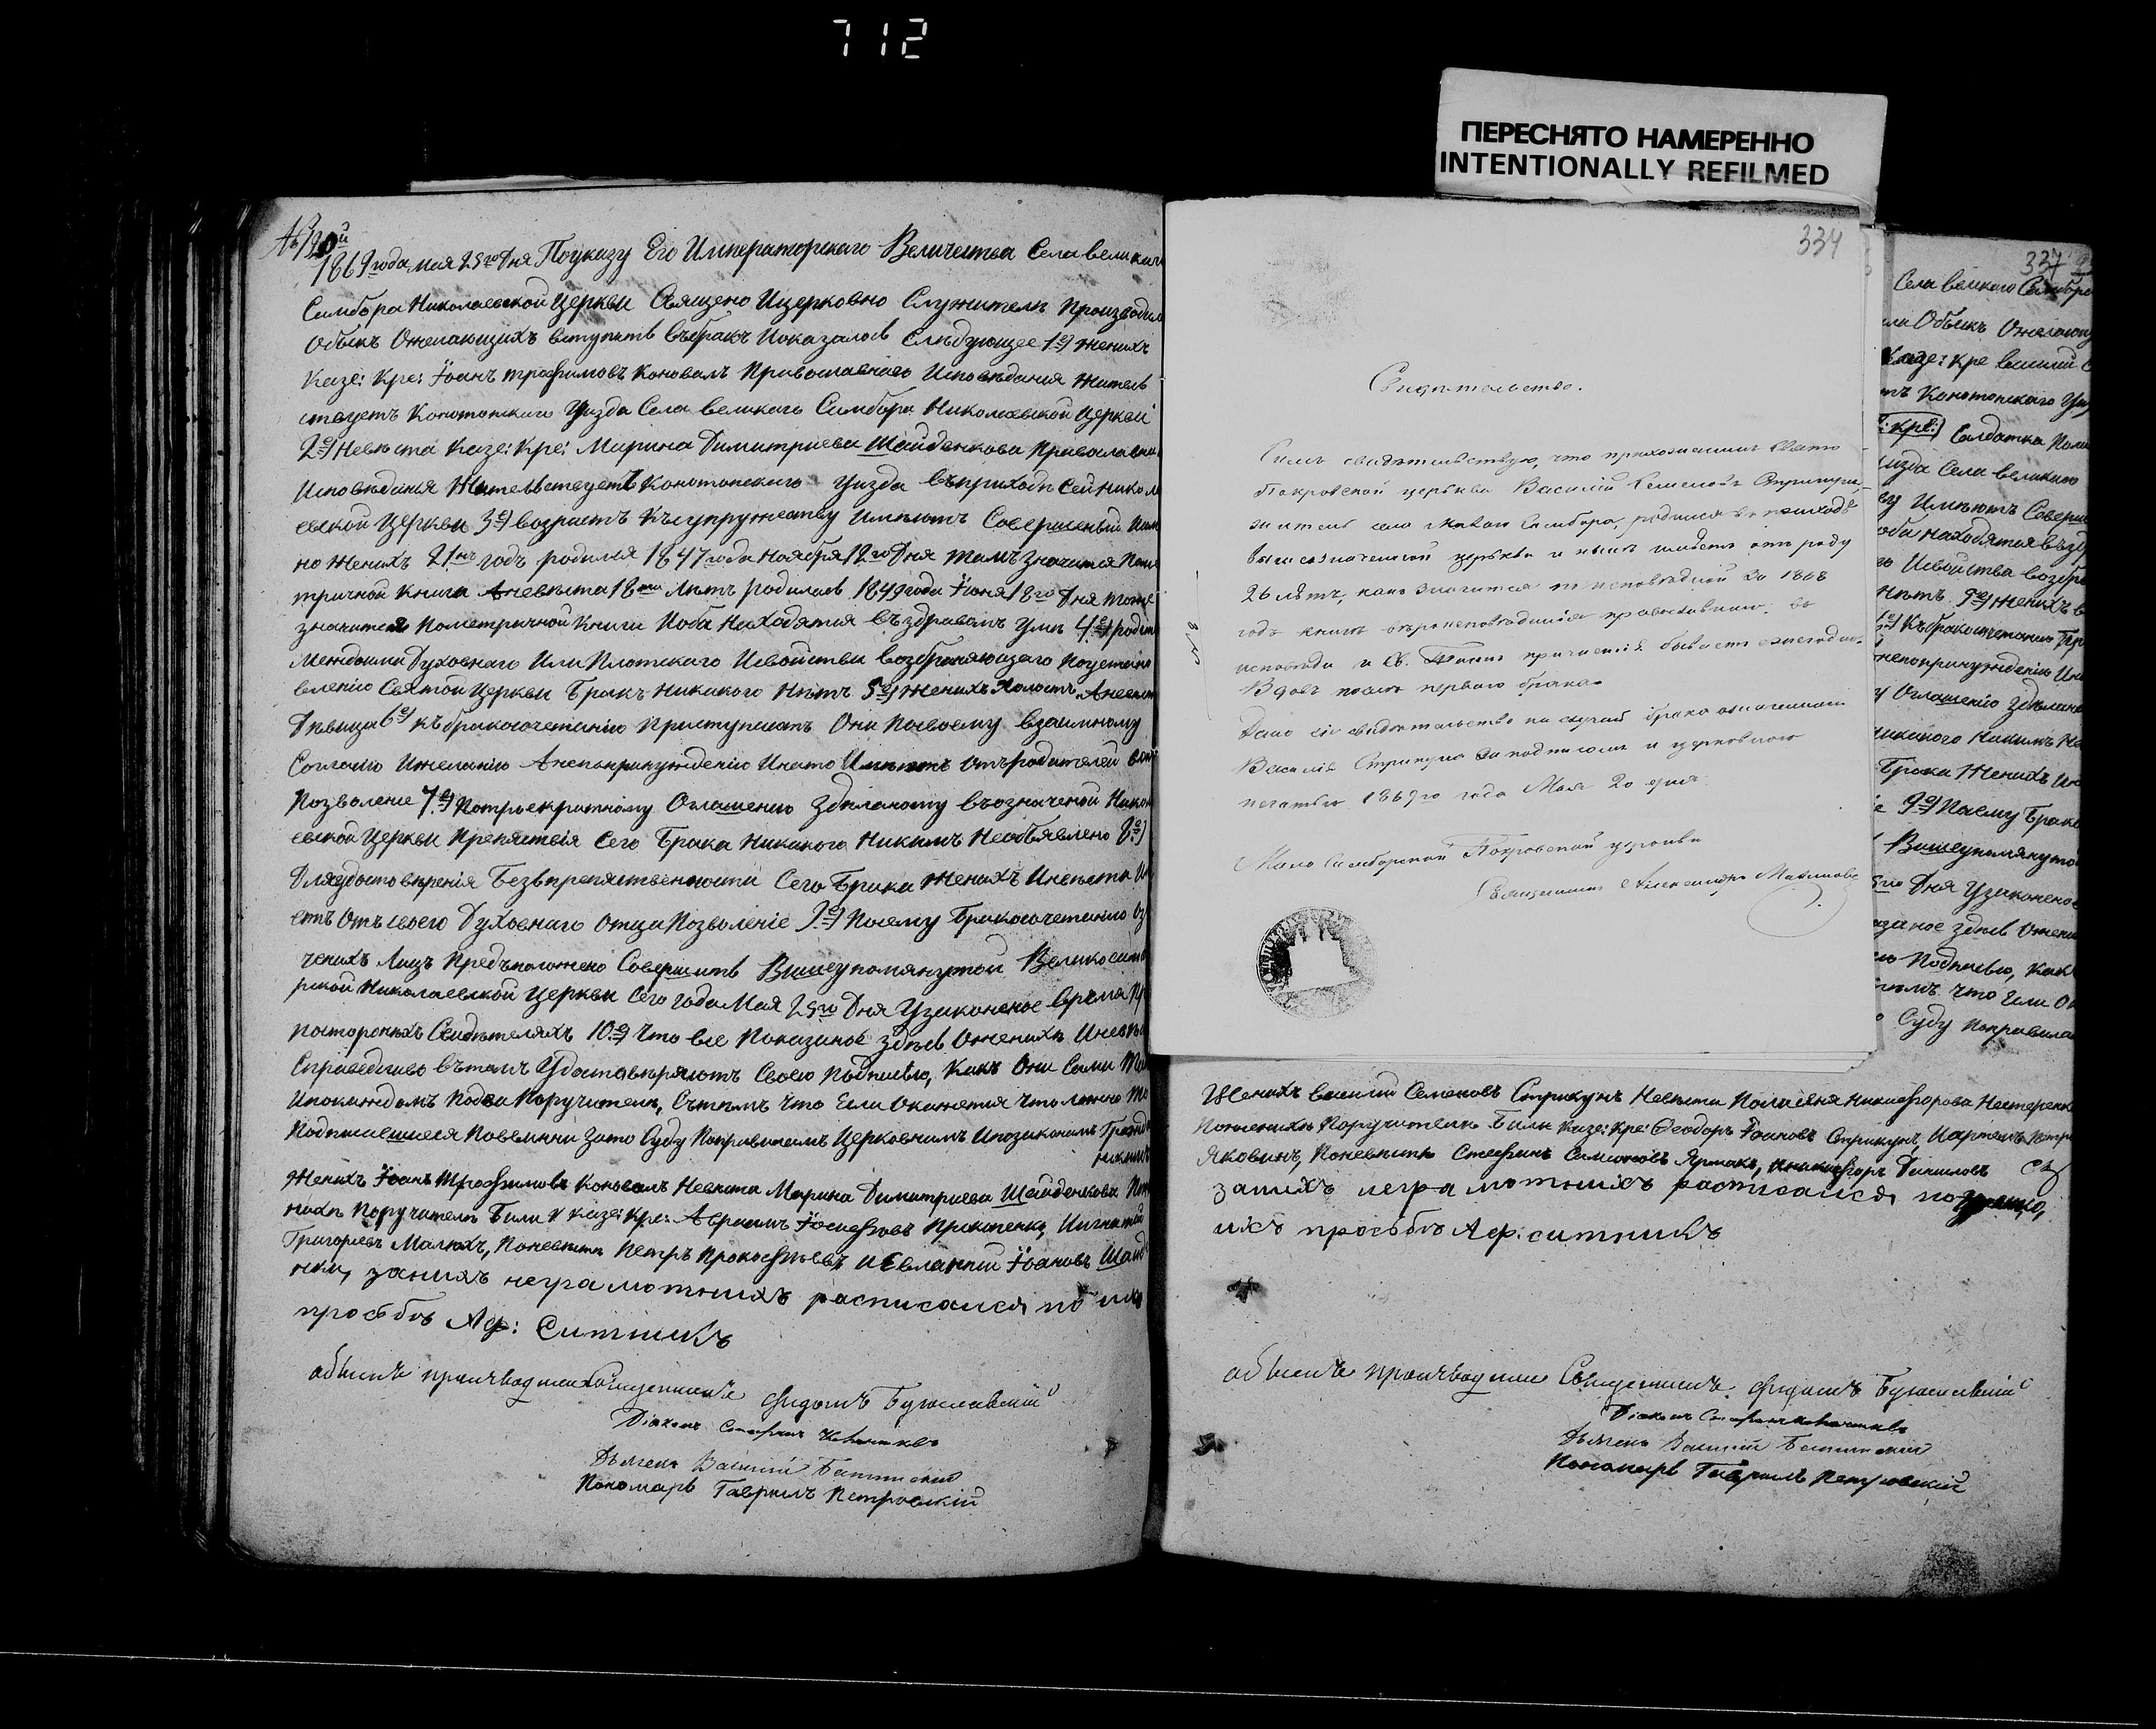 712
ПЕРЕСНЯТО НАМЕРЕННО
INTENTIONALLY REFILMED
1869 года мая 25го Дня Поуказу Его Императорского Величества Села великого
Самбора Николаевской Церкви Священо Ицерковно Служители Производили
Обыкъ Ожелающихъ вступить въбракъ Иоказалось Слѣдующее 1е) женихъ
Казе: Кре: Іоанъ трофимовъ Коновалъ Православного Исповѣдания жителъ
ствуетъ Конотопского Уезда Села великого Самбора Николаевской Церкви
2е) Невѣста Казе: Кре: Марина Димитриева Шайденкова Православно
Исповѣданья Жителвствуетъ Конотопского Уезда въприходѣ Сей Никола
евской Церкви 3е) возрастъ Ксупружеству Имѣютъ Совершеный Имен
но женихъ 21нъ годъ родился 1847 года Ноября 12го Дня тамъ Значится Поме
тричной Книги Аневѣста 18ти Лѣтъ родилась 1849 года Іюня 18го Дня тоже
значится Пометричной Книги Иоба Находятся въздравомъ Умѣ 4е) родства
Междоими Духовнаго Или Плотского Исвойства возбраняющаго Поустано
влению Святой Церкви Бракъ Никакого Нѣтъ 5е) Женихъ Холостъ Аневѣста
Дѣвица 6е) къбракосочетанию Приступаютъ Они Посвоему взаимному
Согласию Ижеланию Анепопринуждению Инато Имѣютъ Отъродителей свои
Позволение 7е) Потроекратному Оглашению Здѣланому въозначеной Никола
евской Церкви Препятствія Сего Брака Никакого Никимъ Необъявлено 8е)
Дляудостовѣренія Безъпрепятственности Сего Брака Женихъ Иневѣста Им
етъ Отъсвоего Духовнаго Отца Позволеніе 9е) Посему Бракосочетанию оз
ченихъ Лицъ Предъположено Совершить Вишеупомянутой Великосамбо
рской Николаевской Церкви Сего Года Мая 25го Дня Узаконеное время Пр
посторонихъ Свидѣтеляхъ 10е) Что все Показаное здѣсь Оженихѣ Иневѣ
Справедливо вътомъ Удостовѣряютъ Своею Подписью, Какъ Они Сами Та
Ипокаждомъ Подва Поручителя, Съ тѣмъ Что Если Окажется Что ложно То
Подписавшиеся Повинни Зато Суду Поправиламъ Церковнымъ Ипозаконамъ Гражда
нскимъ
Женихъ Іоанъ Трофимовъ Коновалъ Невѣста Марина Димитриева Шайденкова Поже
нихѣ Поручители Били Казе: Кре: Авраамъ Іосифовъ Прокопенко, Иигнатий
Григориевъ Малюхъ, Поневѣстѣ Петръ Прокофьевъ ИЕвлампий Іоановъ Шайде
нки, занихъ неграмотнихъ расписался по ихъ
просьбѣ Аф: Ситникъ
обыскъ производили Священникъ Фидотъ Бугославскій
Діаконъ Стефанъ
Дьячекъ Василій
Пономарь Гавриилъ Петровскій
334
Свидѣтельство.
Симъ свидѣтельствую, что прихожанинъ Свято
Покровской церкви Василій Семеновъ Стрикунъ,
житель села Малого Самбора, родился въ приходѣ
вышеозначенной церкви и нынѣ имѣетъ отъ роду
26 лѣтъ, какъ значится по исповѣдной за 1868
годъ книгѣ вѣроисповѣданія православнаго; въ
исповѣди и Св. Таинъ причастія бываетъ ежегодно.
Вдовъ послѣ перваго брака.
Дано сіе свидѣтельство на случай брака означенному
Василію Стрикуну за подписью и церковною
печатью 1869го года Мая 20 дня.
Мало Самборской Покровской церкви
Священникъ Александръ
337
Села великого Самбора
или Обыкъ Ожелающ
Казе: Кре Василий С
тъ Конотопского Уез
:кре:) Солдатка Пола
Уезда Села великого
ву Имѣютъ Соверш
оба находятся въздр
го Исвойства возбра
Нѣтъ 5е) Женихъ в
6е) Къбракосочетанию Пр
непопринуждению Ин
у Оглашению Здѣлано
никакого Никимъ Не
Брака Женихъ Ин
е 9е) Посему Брако
Вишеупомянутой
5го Дня Узаконеное
азаное здѣсь Ожени
ею Подписью, Какъ
тѣмъ Что Если Ок
Суду Поправила
Женихъ Василий Семеновъ Стрикунъ Невѣста Полаѳия Никифорова Нестеренк
Поженихѣ Поручители Били Казе: Кре: Феодоръ Іоановъ Стрикунъ, Иартемъ Петр
Яковинъ, Поневѣстѣ Стефанъ Симоновъ Ярмакъ, Иникифоръ Даниловъ
занихъ неграмотнихъ расписался по
ихъ просьбѣ Аф: ситникъ
обыскъ производили Священникъ Фидотъ Бугославскій
Діаконъ Стефанъ
Дьячекъ Василій
Пономарь Гавриилъ Петровский